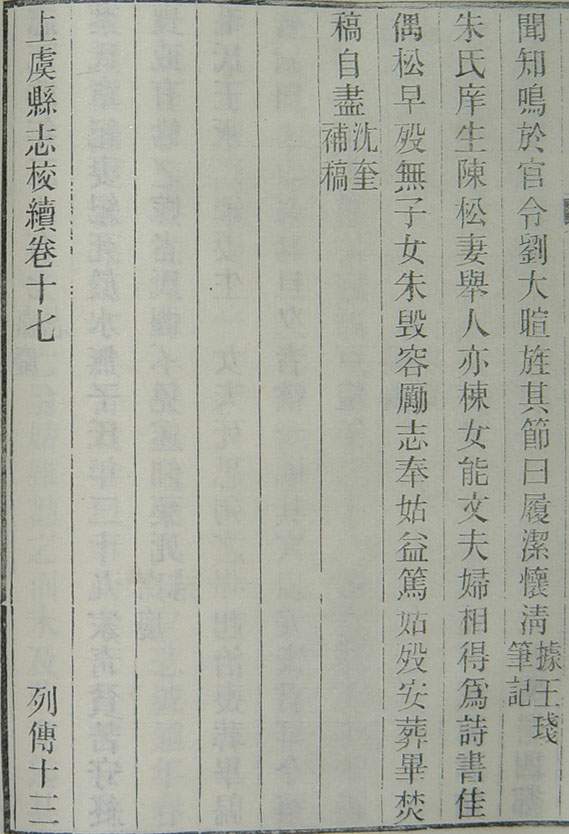 聞知鳴於官令劉大暄旌其節曰履潔懷清據王㻉筆記
朱氏庠生陳松妻舉人亦棟女能文夫婦相得爲詩書佳
偶松早歿無子女朱毁容勵志奉姑益篤姑歿安葬畢焚
稿自盡沈奎補稿
上虞縣志校續卷十七 列傳十三